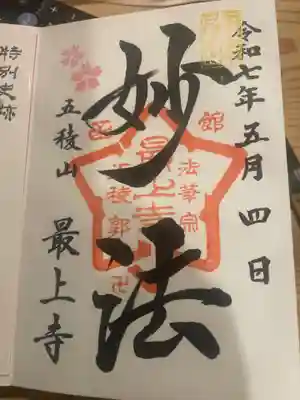 令和七年五月四日
妙法
函館
最上寺
法華宗
五稜郭
卍
五稜山 最上寺
特別史跡